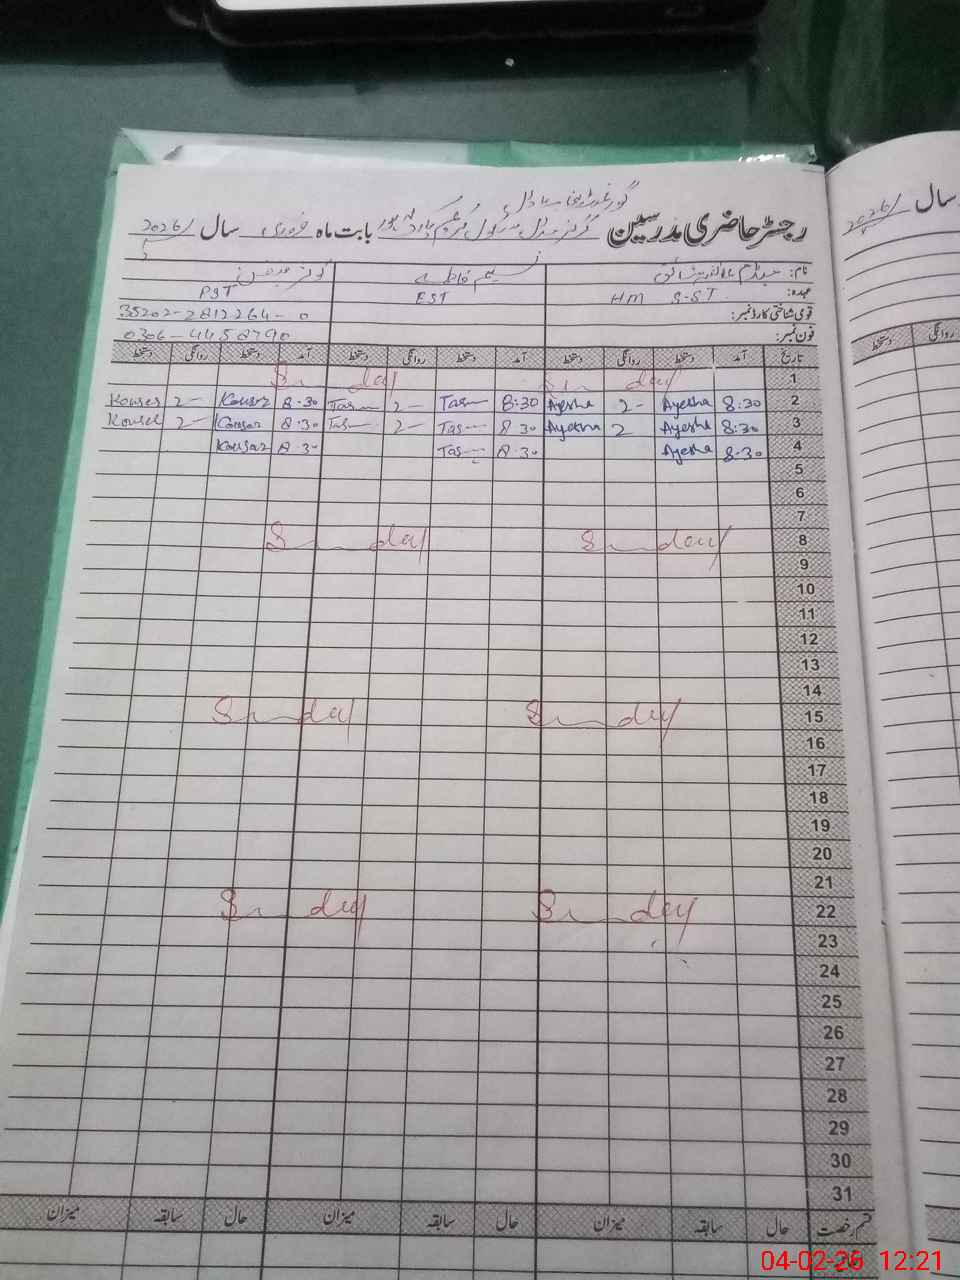 رجسٹر حاضری مدرسین گورنمنٹ گرلز مڈل سکول بابت ماہ فروری سال 2026/
سال 2026/
نام: میڈم نسیم فاطمہ کوثر
عہدہ: HM S-ST EST PST
قومی شناختی کارڈ نمبر: 35202-2812264-0
فون نمبر: 0306-4458790
تاریخ آمد دستخط روانگی دستخط آمد دستخط روانگی دستخط آمد دستخط روانگی دستخط
روانگی دستخط
1 Sunday Sunday
2 8:30 Ayesha 2- Ayesha 8:30 Tas 2- Tas 8.30 Kousar 2- Kouser
3 8:30 Ayesha 2 Ayesha 8 30 Tas 2- Tas 8.30 Kousar 2- Kouser
4 8.30 Ayesha 8.30 Tas 8.30 Kousar
5
6
7
8 Sunday Sunday
9
10
11
12
13
14
15 Sunday Sunday
16
17
18
19
20
21
22 Sunday Sunday
23
24
25
26
27
28
29
30
31
قسم رخصت حال سابقہ میزان حال سابقہ میزان حال سابقہ میزان
04-02-26 12:21